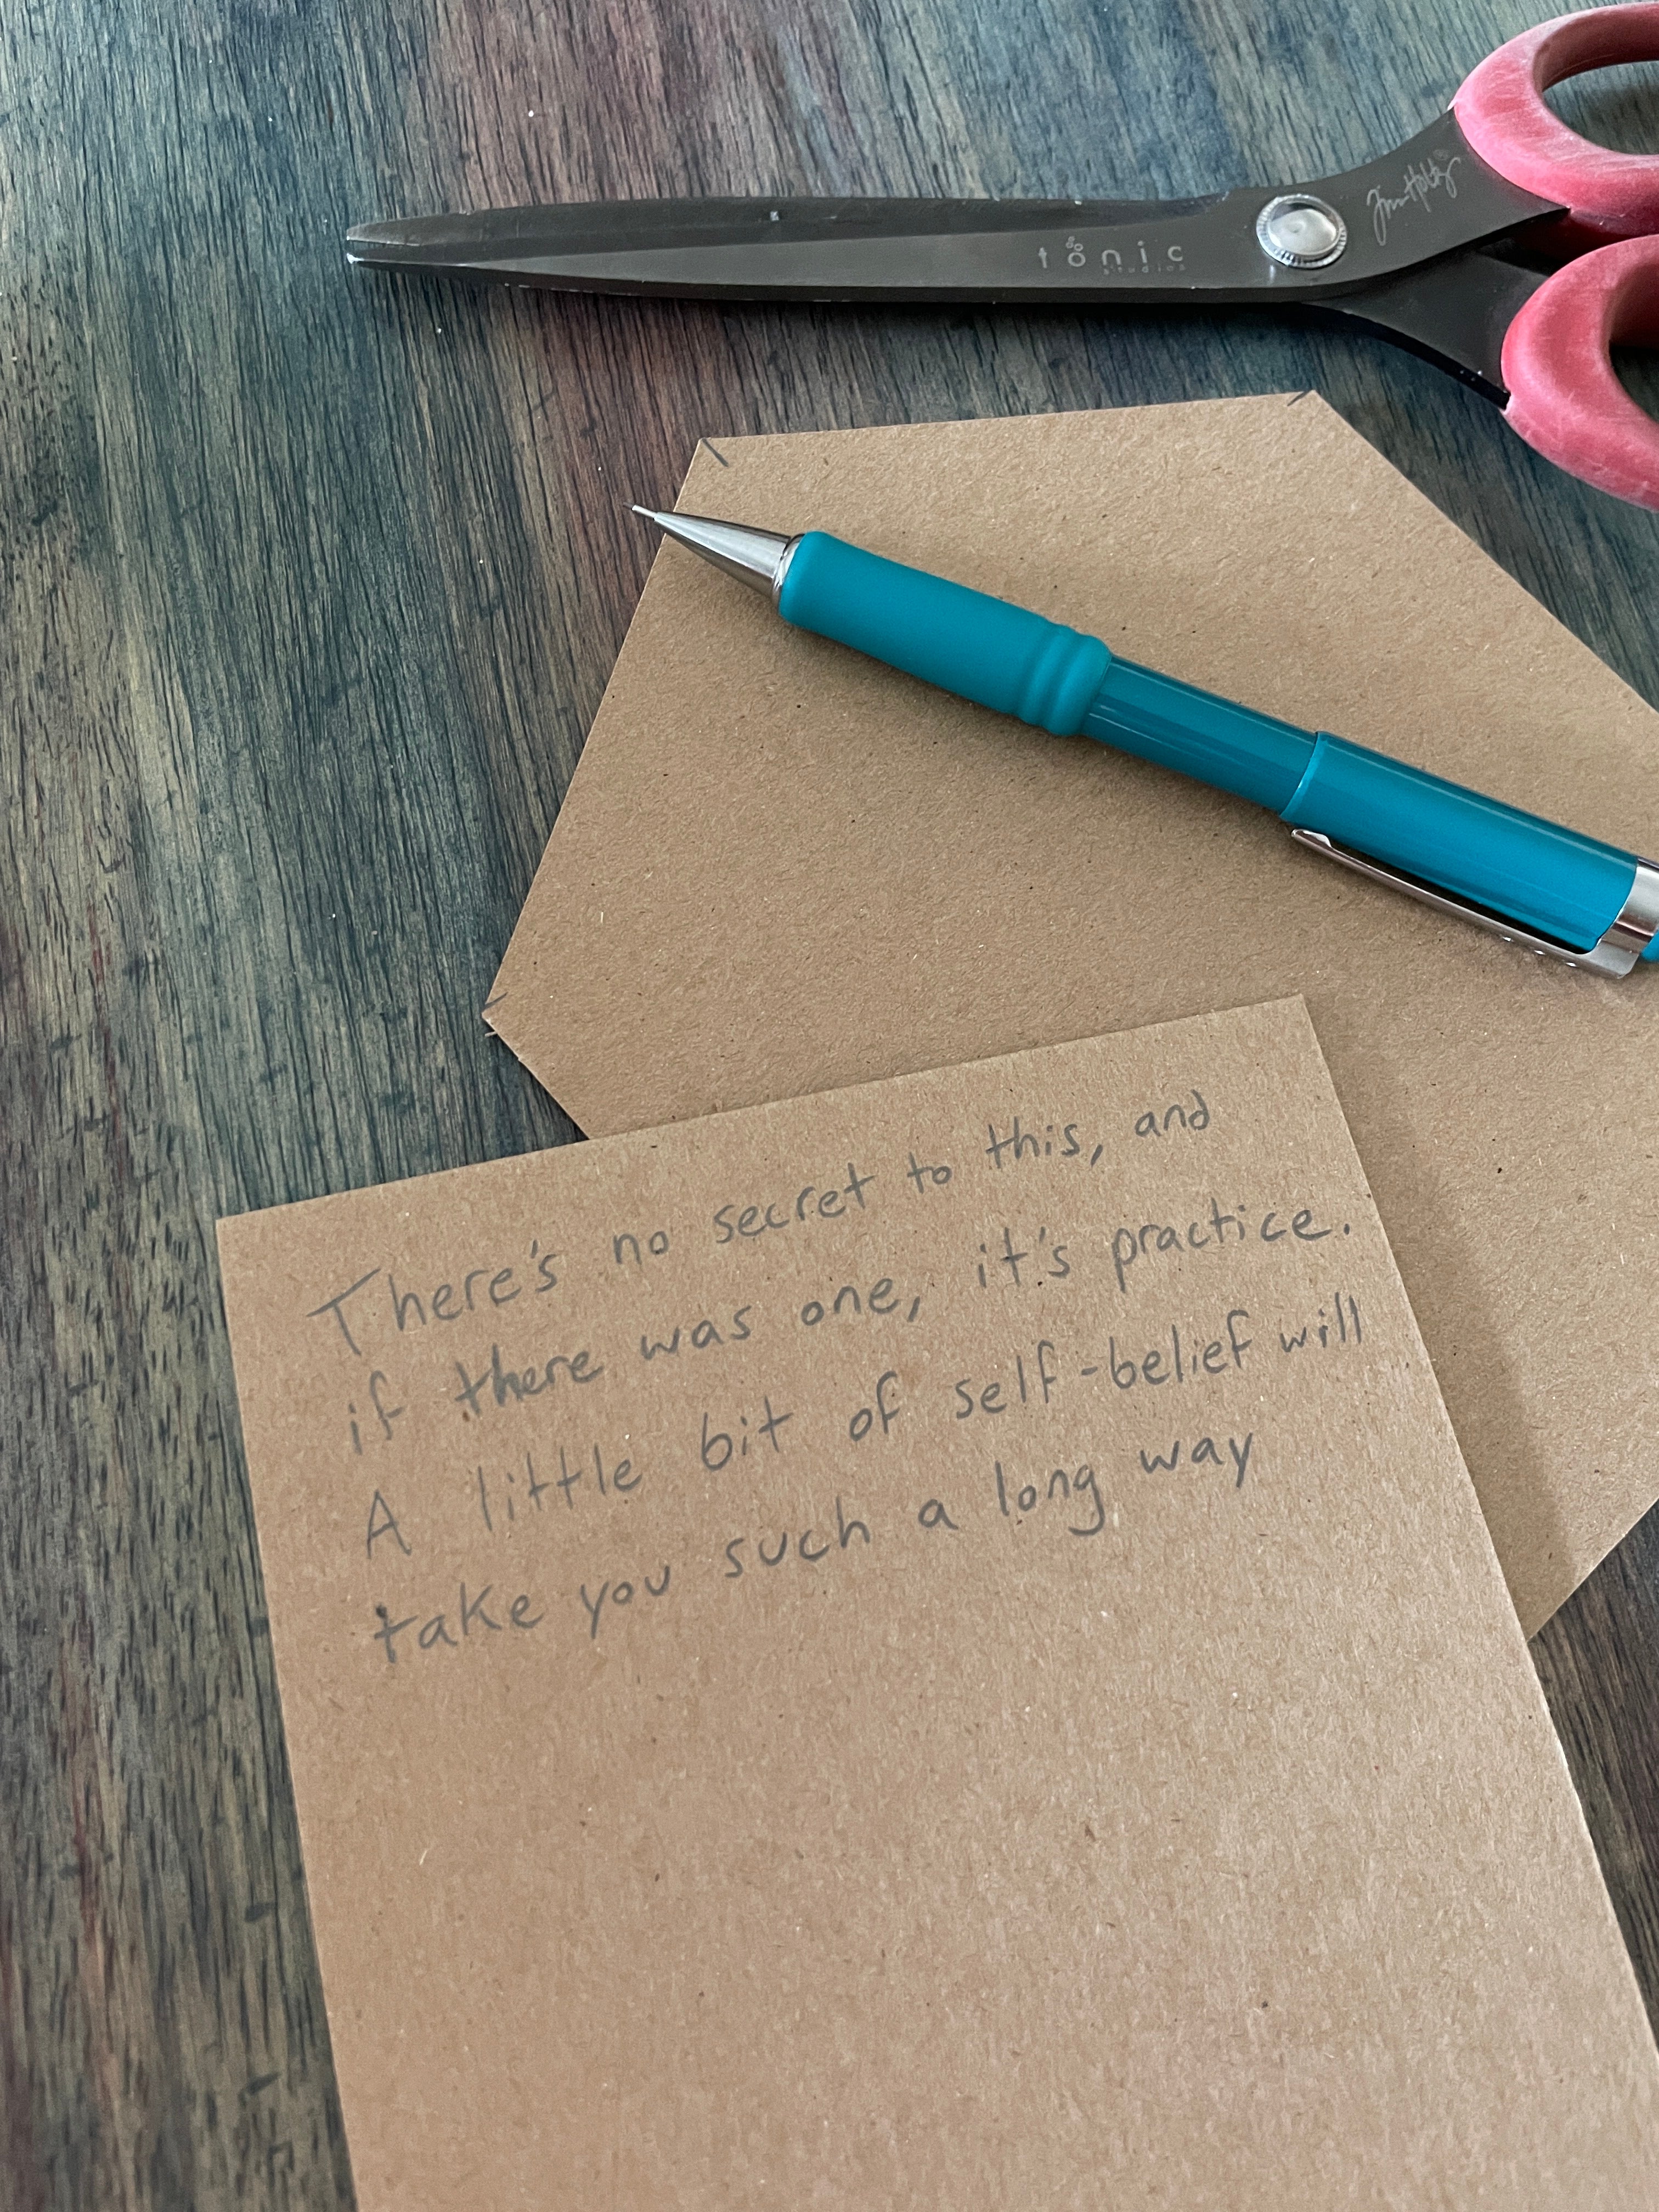 Tim Holtz®
tonic
studios
There's no secret to this, and
if there was one, it's practice.
A little bit of self-belief will
take you such a long way